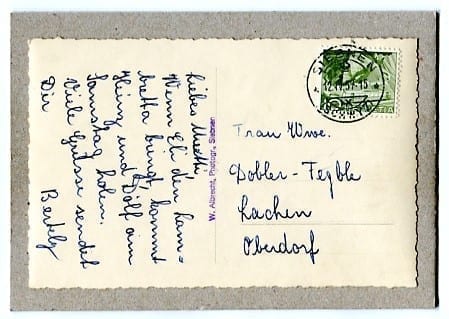 Liebes Muetti
Wenn Eli den Lam-
bretta bringt, kommt
Heinz und Dölf am
Samstag holen.
Viele Grüsse sendet
Dir Bethly
W. Albrecht, Photogr., Siebnen
SIEBNEN
12.IV.57-15
(SCHWYZ)
Frau Wwe.
Dobler-Fegble
Lachen
Oberdorf